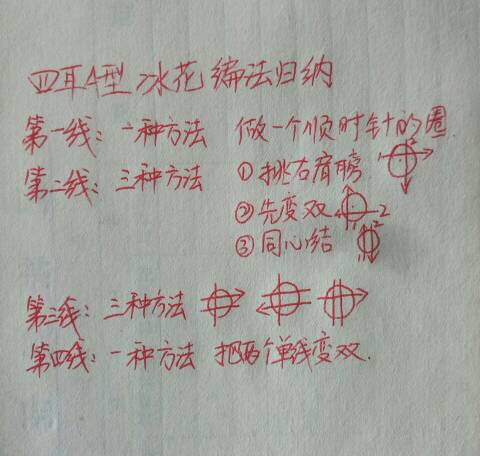 四耳A型冰花编法归纳
第一线：一种方法 做一个顺时针的圈
第二线：三种方法 ①挑右肩膀 2
②先变双 2
③同心结 2
第三线：三种方法
第四线：一种方法 把两个单线变双.